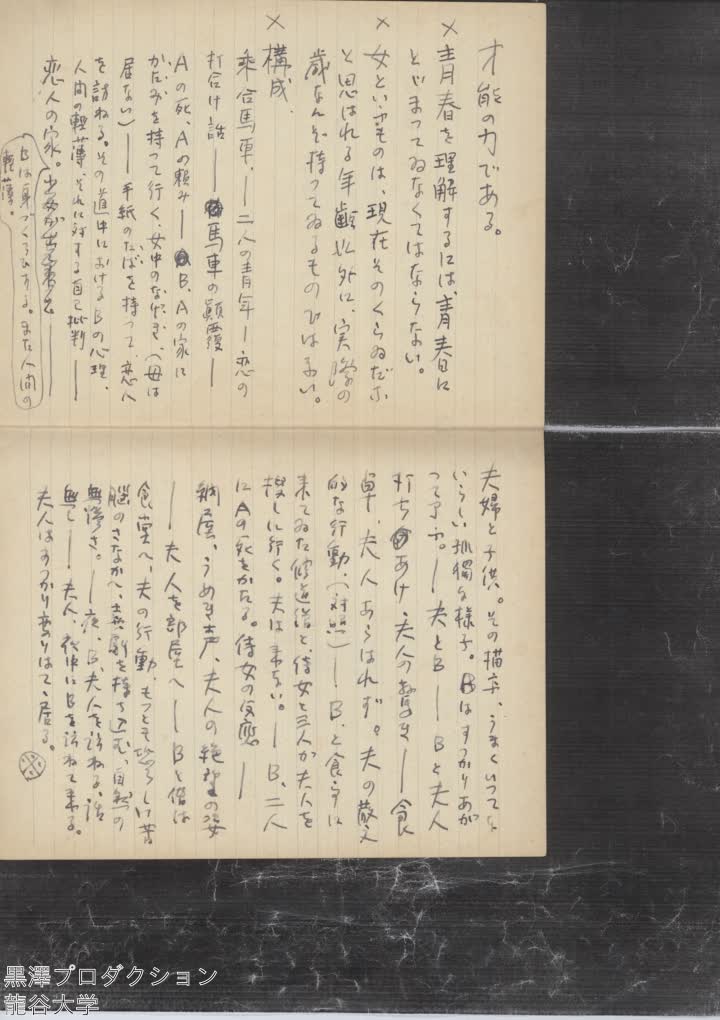 才能の力である。
×青春を理解するには、青春に
とどまってゐなくてはならない。
×女といふものは、現在そのくらゐだな
と思はれる年齢以外に、実際の
歳なんぞ持ってゐるものではない。
×構成.
乗合馬車、――二人の青年――恋の
打合け話――馬車の顚覆――
Aの死、Aの頼み――B、Aの家に
かたみを持って行く、女中のなげき、(母は
居ない)――手紙のたばを持って、恋人
を訪ねる。その道中に於けるBの心理、
人間の軽薄、それに対する自己批判――
恋人の家。
Bは身づくろひする。また人間の
軽薄。
夫婦と子供。その描写、うまくいってな
いらしい孤獨な様子。Bはすっかりあが
って了ふ。――夫とB――Bと夫人
打ちあけ、夫人の驚き――食
卓、夫人あらはれず。夫の散文
的な行動、(対照)――B、と食らずに
来てゐた修道僧と、侍女と三人が夫人を
捜しに行く。夫は来ない。――B、二人
にAの死をかたる。侍女の反應――
うめき声、夫人の絶望の姿
――夫人を部屋へ――Bと僧は
食堂へ、夫の行動、もっとも恐ろしい苦
悩のさなかへ、喜劇を持ち込む、自然の
無慘さ。――夜、B、夫人を訪ねる、話
無し――夫人、夜中にBを訪ねて来る。
夫人はすっかり変りはてゝ居る。
黒澤プロダクション
龍谷大学